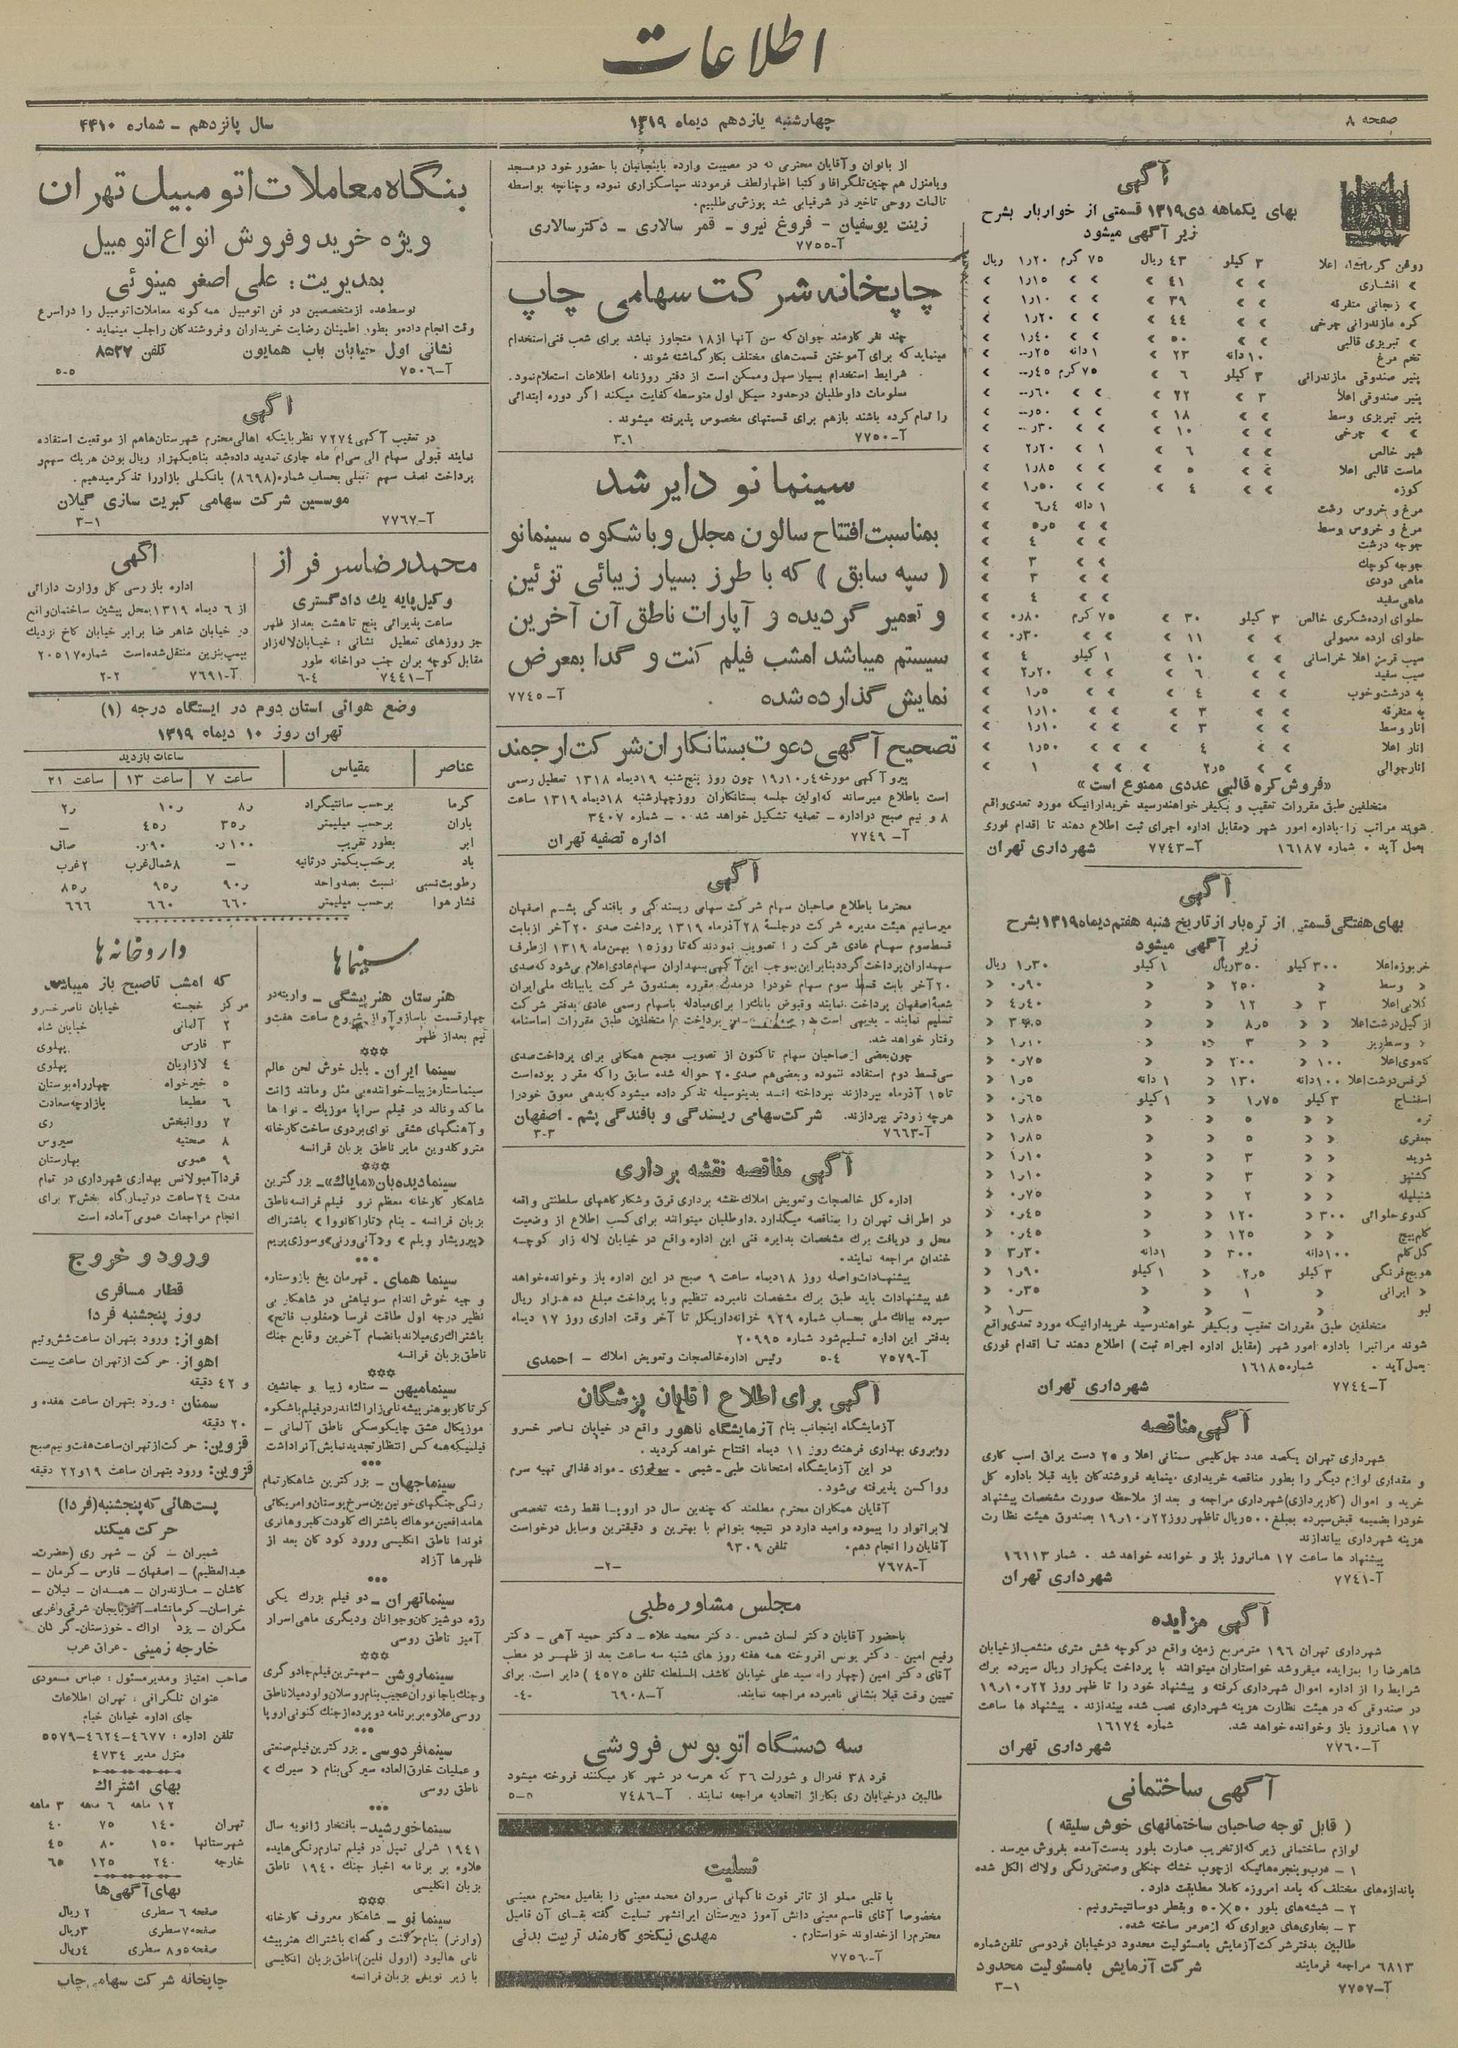 اطلاعات
صفحه ۸
چهارشنبه یازدهم دیماه ۱۳۱۹
سال پانزدهم - شماره ۴۴۱۰
آگهی
بهای یکماهه دی ۱۳۱۹ قسمتی از خواربار بشرح
زیر آگهی میشود
روغن کرمانشاه اعلا ۳ کیلو ۴۳ ریال ۷۵ گرم ۱٫۲۰ ریال
» افشاری » » ۴۱ » » » ۱٫۱۵ »
» زنجانی متفرقه » » ۳۹ » » » ۱٫۱۰ »
کره مازندرانی چرخی » » ۴۴ » » » ۱٫۲۰ »
» تبریزی قالبی » » ۵۰ » » » ۱٫۴۰ »
تخم مرغ ۱۰ دانه ۲۳ » ۱ دانه ۲۵ر-- »
پنیر صندوقی مازندرانی ۳ کیلو ۶ » ۷۵ گرم ۴۵ر-- »
پنیر صندوقی اعلا ۳ » ۲۲ » » » ۶۰ر-- »
پنیر تبریزی وسط » » ۱۸ » » » ۵۰ر-- »
» » چرخی » » ۱۰ » » » ۳۰ر-- »
شیر خالص » » ۶ » ۱ » ۲٫۲۰ »
ماست قالبی اعلا » » ۵ » » » ۱٫۸۵ »
کوزه » » ۴ » » » ۱٫۵۰ »
مرغ و خروس رشت ۱ دانه ۶٫۴ »
مرغ و خروس وسط » » ۵٫۵ »
جوجه درشت » » ۴ »
جوجه کوچک » » ۳ »
ماهی دودی » » ۳ »
ماهی سفید » » ۴ »
حلوای ارده شکری خالص ۳ کیلو ۳۰ » ۷۵ گرم ۰٫۸۰ »
حلوای ارده معمولی » » ۱۱ » » » ۰٫۳۰ »
سیب قرمز اعلا خراسانی » » ۱۰ » ۱ کیلو ۴ »
سیب سفید » » ۶ » » » ۲٫۲۰ »
به درشت و خوب » » ۴ » » » ۱٫۵ »
به متفرقه » » ۳ » » » ۱٫۱۰ »
انار وسط » » ۳ » » » ۱٫۱۰ »
انار اعلا » » ۴ » » » ۱٫۵۰ »
انار جوالی » » ۲٫۵ » » » ۱ »
«فروش کره قالبی عددی ممنوع است»
متخلفین طبق مقررات تعقیب و بکیفر خواهند رسید خریدارانیکه مورد تعدی واقع
شوند مراتب را باداره امور شهر «مقابل اداره اجرای ثبت اطلاع دهند تا اقدام فوری
بعمل آید . شماره ۱۶۱۸۷ آ-۷۷۴۳ شهرداری تهران
آگهی
بهای هفتگی قسمتی از تره بار از تاریخ شنبه هفتم دیماه ۱۳۱۹ بشرح
زیر آگهی میشود
خربوزه اعلا ۳۰۰ کیلو ۳۵۰ ریال ۱ کیلو ۱٫۳۰ ریال
» وسط » ۲۵۰ » » ۰٫۹۰ »
گلابی اعلا ۳ » ۱۲ » » ۴٫۴۰ »
ازگیل درشت اعلا » » ۸٫۵ » »
» وسط ریز » » ۳ » » ۱٫۱۰ »
کاهوی اعلا ۱۰۰ » ۲۰۰ » » ۰٫۷۵ »
کرفس درشت اعلا ۱۰۰ دانه ۱۳۰ » ۱ دانه ۱٫۵ »
اسفناج ۳ کیلو ۱٫۷۵ » ۱ کیلو ۰٫۶۵ »
تره » » ۵ » » ۱٫۸۵ »
جعفری » » ۵ » » ۱٫۸۵ »
شوید » » ۳ » » ۱٫۱۰ »
گشنیز » » ۳ » » ۱٫۱۰ »
شنبلیله » » ۲ » » ۰٫۷۵ »
کدوی حلوائی ۳۰۰ » ۱۲۰ » » ۰٫۴۵ »
کلم پیچ » » ۱۲۵ » » ۰٫۴۵ »
گل کلم ۱۰۰ دانه ۳۰۰ » ۱ دانه ۳٫۳۰ »
هویج فرنگی ۳ کیلو ۲٫۵ » ۱ کیلو ۱٫۹۰ »
» ایرانی » » ۱ » » ۰٫۳۵ »
لبو - - » ۱٫- »
متخلفین طبق مقررات تعقیب و بکیفر خواهند رسید خریدارانیکه مورد تعدی واقع
شوند مراتبرا باداره امور شهر (مقابل اداره اجراء ثبت) اطلاع دهند تا اقدام فوری
بعمل آید . شماره ۱۶۱۸۵
آ-۷۷۴۴ شهرداری تهران
آگهی مناقصه
شهرداری تهران یکصد عدد جل کلیمی سمنانی اعلا و ۲۵ دست یراق اسب گاری
و مقداری لوازم دیگر را بطور مناقصه خریداری مینماید فروشندگان باید قبلا باداره کل
خرید و اموال (کارپردازی) شهرداری مراجعه و بعد از ملاحظه صورت مشخصات پیشنهاد
خود را بضمیمه قبض سپرده بمبلغ ۵۰۰ ریال تاظهر روز ۲۲ر۱۰ر۱۹ بصندوق هیئت نظارت
هزینه شهرداری بیاندازند
پیشنهاد ها ساعت ۱۷ همانروز باز و خوانده خواهد شد . شمار ۱۶۱۱۳
آ-۷۷۴۱ شهرداری تهران
آگهی مزایده
شهرداری تهران ۱۹۶ متر مربع زمین واقع در کوچه شش متری منشعب از خیابان
شاهرضا را بمزایده میفروشد خواستاران میتوانند با پرداخت یکهزار ریال سپرده برک
شرایط را از اداره اموال شهرداری گرفته و پیشنهاد خود را تا ظهر روز ۲۲ر۱۰ر۱۹
در صندوقی که در هیئت نظارت هزینه شهرداری نصب شده بیندازند . پیشنهاد ها ساعت
۱۷ همانروز باز و خوانده خواهد شد. شماره ۱۶۱۷۴
آ-۷۷۶۰ شهرداری تهران
آگهی ساختمانی
( قابل توجه صاحبان ساختمانهای خوش سلیقه )
لوازم ساختمانی زیر که از تخریب عمارت بلور بدست آمده بفروش میرسد .
۱ - درب و پنجره هائیکه از چوب خشک جنگلی و صنعتی رنگی و لاک الکل شده
باندازه های مختلف که با مد امروزه کاملا مطابقت دارد .
۲ - شیشه های بلور ۵۰×۵۰ و بقطر دو سانتیمترونیم .
۳ - بخاری های دیواری که از مرمر ساخته شده.
طالبین بدفتر شرکت آزمایش بامسئولیت محدود در خیابان فردوسی تلفن شماره
۶۸۱۳ مراجعه فرمایند شرکت آزمایش بامسئولیت محدود
آ-۷۷۵۷ ۳-۱
از بانوان و آقایان محترمی که در مصیبت وارده باینجانبان با حضور خود در مسجد
و یا منزل هم چنین تلگرافا و کتبا اظهار لطف فرمودند سپاسگزاری نموده و چنانچه بواسطه
تالمات روحی تاخیر در شرفیابی شد پوزش می طلبیم.
زینت یوسفیان - فروغ نیرو - قمر سالاری - دکتر سالاری
آ-۷۷۵۵
چاپخانه شرکت سهامی چاپ
چند نفر کارمند جوان که سن آنها از ۱۸ متجاوز نباشد برای شعب فنی استخدام
مینماید که برای آموختن قسمت های مختلف بکار گماشته شوند .
شرایط استخدام بسیار سهل و ممکن است از دفتر روزنامه اطلاعات استعلام نمود.
معلومات داوطلبان در حدود سیکل اول متوسطه کفایت میکند اگر دوره ابتدائی
را تمام کرده باشند باز هم برای قسمتهای مخصوص پذیرفته میشوند .
آ-۷۷۵۰ ۳-۱
سینما نو دایر شد
بمناسبت افتتاح سالون مجلل و با شکوه سینمانو
( سپه سابق ) که با طرز بسیار زیبائی تزئین
و تعمیر گردیده و آپارات ناطق آن آخرین
سیستم میباشد امشب فیلم کنت و گدا بمعرض
نمایش گذارده شده . آ-۷۷۴۵
تصحیح آگهی دعوت بستانکاران شرکت ارجمند
پیرو آگهی مورخه ۴ر۱۰ر۱۹ چون روز پنج شنبه ۱۹ دیماه ۱۳۱۸ تعطیل رسمی
است باطلاع میرساند که اولین جلسه بستانکاران روز چهارشنبه ۱۸ دیماه ۱۳۱۹ ساعت
۸ و نیم صبح در اداره - تصفیه تشکیل خواهد شد . - شماره ۳۴۰۷
آ-۷۷۴۹ اداره تصفیه تهران
آگهی
محترما باطلاع صاحبان سهام شرکت سهامی ریسندگی و بافندگی پشم اصفهان
میرسانیم هیئت مدیره شرکت در جلسهٔ ۲۸ آذرماه ۱۳۱۹ پرداخت صدی ۲۰ آخر از بابت
قسط سوم سهام عادی شرکت را تصویب نمودند که تا روز ۱۵ بهمن ماه ۱۳۱۹ از طرف
سهمداران پرداخت گردد بنابر این بموجب این آگهی بسهمداران سهام عادی اعلام می شود که صدی
۲۰ آخر بابت قسط سوم سهام خود را در مدت مقرره بصندوق شرکت یا ببانک ملی ایران
شعبهٔ اصفهان پرداخت نمایند و قبوض بانک را برای مبادله باسهام رسمی عادی بدفتر شرکت
تسلیم نمایند - بدیهی است در پرداخت با متخلفین طبق مقررات اساسنامه
رفتار خواهد شد.
چون بعضی از صاحبان سهام تا کنون از تصویب مجمع همگانی برای پرداخت صدی
سی قسط دوم استفاده ننموده و بعضی هم صدی ۲۰ حواله شده سابق را که مقرر بوده است
تا ۱۵ آذرماه بپردازند نپرداخته اند بدینوسیله تذکر داده میشود که بدهی معوق خود را
هر چه زودتر بپردازند. شرکت سهامی ریسندگی و بافندگی پشم . اصفهان
آ-۷۶۶۳ ۳-۳
آگهی مناقصه نقشه برداری
اداره کل خالصجات و تعویض املاک نقشه برداری قرق و شکارگاههای سلطنتی واقعه
در اطراف تهران را بمناقصه میگذارد. داوطلبان میتوانند برای کسب اطلاع از وضعیت
محل و دریافت برک مشخصات بدایره فنی این اداره واقع در خیابان لاله زار کوچه
خندان مراجعه نمایند.
پیشنهادات واصله روز ۱۸ دیماه ساعت ۹ صبح در این اداره باز و خوانده خواهد
شد پیشنهادات باید طبق برک مشخصات نامبرده تنظیم و با پرداخت مبلغ ده هزار ریال
سپرده ببانک ملی بحساب شماره ۹۲۹ خزانه داریکل تا آخر وقت اداری روز ۱۷ دیماه
بدفتر این اداره تسلیم شود شماره ۲۰۹۹۵
آ-۷۵۷۹ ۵-۴ رئیس اداره خالصجات و تعویض املاک - احمدی
آگهی برای اطلاع آقایان پزشگان
آزمایشگاه اینجانب بنام آزمایشگاه ناهور واقع در خیابان ناصر خسرو
روبروی بهداری فرهنگ روز ۱۱ دیماه افتتاح خواهد گردید .
در این آزمایشگاه امتحانات طبی - شیمی - سرولوژی - مواد غذائی تهیه سرم
و واکسن پذیرفته می شود.
آقایان همکاران محترم مطلعند که چندین سال در اروپا فقط رشته تخصصی
لابراتوار را پیموده و امید دارد در نتیجه بتوانم با بهترین و دقیقترین وسایل درخواست
آقایان را انجام دهم. تلفن ۹۳۰۹
آ-۷۶۷۸ -۲-
مجلس مشاوره طبی
باحضور آقایان دکتر لسان شمس - دکتر محمد علاء - دکتر حمید آهی - دکتر
رفیع امین - دکتر یونس افروخته همه هفته روز های شنبه سه ساعت بعد از ظهر در مطب
آقای دکتر امین (چهار راه سید علی خیابان کاشف السلطنه تلفن ۴۵۷۵) دایر است. برای
تعیین وقت قبلا بنشانی نامبرده مراجعه نمایند. آ-۶۹۰۸ -۴-
سه دستگاه اتوبوس فروشی
فرد ۳۸ فدرال و شورلت ۳۶ که هر سه در شهر کار میکنند فروخته میشود
طالبین در خیابان ری بگاراژ اتحادیه مراجعه نمایند . آ-۷۴۸۶ ۵-۵
تسلیت
با قلبی مملو از تاثر فوت ناگهانی سروان محمد معینی را بفامیل محترم معینی
مخصوصا آقای قاسم معینی دانش آموز دبیرستان ایرانشهر تسلیت گفته بقای آن فامیل
محترم را از خداوند خواستارم . مهدی نیکخو کارمند تربیت بدنی
آ-۷۷۵۶
بنگاه معاملات اتومبیل تهران
ویژه خرید و فروش انواع اتومبیل
بمدیریت : علی اصغر مینوئی
توسط عده از متخصصین در فن اتومبیل همه گونه معاملات اتومبیل را در اسرع
وقت انجام داده و بطور اطمینان رضایت خریداران و فروشندگان را جلب مینماید .
نشانی اول خیابان باب همایون تلفن ۸۵۳۷
آ-۷۵۰۶ ۵-۵
آگهی
در تعقیب آگهی ۷۲۷۴ نظر باینکه اهالی محترم شهرستان ها هم از موقعیت استفاده
نمایند قبولی سهام الی سی ام ماه جاری تمدید داده شد بناء یکهزار ریال بودن هر یک سهم و
پرداخت نصف سهم قبلی بحساب شماره (۸۶۹۸) بانک ملی بازار را تذکر میدهیم.
موسسین شرکت سهامی کبریت سازی گیلان
آ-۷۷۶۷ ۳-۱
محمدرضا سرفراز
وکیل پایه یک دادگستری
ساعت پذیرائی پنج تا هشت بعد از ظهر
جز روزهای تعطیل نشانی : خیابان لاله زار
مقابل کوچه بران جنب دواخانه طور
آ-۷۴۴۱ ۶-۴
آگهی
اداره بازرسی کل وزارت دارائی
از ۶ دیماه ۱۳۱۹ بمحل پیشین ساختمان واقع
در خیابان شاهرضا برابر خیابان کاخ نزدیک
پمپ بنزین منتقل شده است شماره ۲۰۵۱۷
آ-۷۶۹۱ ۲-۲
وضع هوائی استان دوم در ایستگاه درجه (۱)
تهران روز ۱۰ دیماه ۱۳۱۹
عناصر مقیاس ساعات بازدید
ساعت ۷ ساعت ۱۳ ساعت ۲۱
گرما برحسب سانتیگراد ر۸ ر۱۰ ر۲
باران برحسب میلیمتر ر۳۵ ر۴۵ -
ابر بطور تقریب ۰٫۱۰۰ ۰٫۹۰ صاف
باد برحسب یکمتر در ثانیه - ۸ شمال غرب ۲ غرب
رطوبت نسبی نسبت بصد واحد ر۹۰ ر۹۵ ر۸۵
فشار هوا برحسب میلیمتر ۶۶۰ ۶۶۰ ۶۶۶
سینماها
هنرستان هنرپیشگی - واریته در
چهار قسمت باساز و آواز شروع ساعت هفت و
نیم بعد از ظهر
سینما ایران - بلبل خوش لحن عالم
سینما ستاره زیبا - خواننده بی مثل و مانند ژانت
ماکدونالد در فیلم سراپا موزیک - نوا ها
و آهنگهای عشقی نوای بردوی ساخت کارخانه
مترو گلدوین مایر ناطق بزبان فرانسه
سینما دیده بان «مایاک» - بزرگترین
شاهکار کارخانه معظم نرو فیلم فرانسه ناطق
بزبان فرانسه - بنام «تاراکانووا» باشتراک
«پیر ریشار ویلم» و «آنی ورنی» و سوزی پریم
سینما همای - قهرمان یخ باز و ستاره
و جیه خوش اندام سونیاهنی در شاهکار بی
نظیر درجه اول طاقت فرسا «مغلوب فاتح»
باشتراک ری میلاند بانضمام آخرین وقایع جنگ
ناطق بزبان فرانسه
سینما میهن - ستاره زیبا و جانشین
گرتا گاربو هنرپیشه نامی زارا لئاندر در فیلم باشکوه
موزیکال عشق چایکوسکی ناطق آلمانی -
فیلمیکه همه کس انتظار تجدید نمایش آنرا داشت
سینما جهان - بزرگترین شاهکار تمام
رنگی جنگهای خونین بین سرخ پوستان و امریکائی
ها مدافعین موهاک باشتراک کلودت کلبر و هانری
فوندا ناطق انگلیسی ورود کودکان بعد از
ظهرها آزاد
سینما تهران - دو فیلم بزرگ یکی
رژه دوشیزگان و جوانان و دیگری ماهی اسرار
آمیز ناطق روسی
سینما روشن - مهمترین فیلم جادوگری
و جنگ با جانوران عجیب بنام روسلان و لودمیلا ناطق
روسی علاوه بر برنامه دو پرده از جنگ کنونی اروپا
سینما فردوسی - بزرگترین فیلم صنعتی
و عملیات خارق العاده سیرکی بنام « سیرک »
ناطق روسی
سینما خورشید - بافتخار ژانویه سال
۱۹۴۱ شرلی تمپل در فیلم تمام رنگی هایده
علاوه بر برنامه اخبار جنگ ۱۹۴۰ ناطق
بزبان انگلیسی
سینما نو - شاهکار معروف کارخانه
(وارنر) بنام «کنت و گدا» باشتراک هنرپیشه
نامی هالیود (ارول فلین) ناطق بزبان انگلیسی
با زیر نویس بزبان فرانسه
داروخانه ها
که امشب تاصبح باز میباشند
مرکز خجسته خیابان ناصر خسرو
۲ آلمانی خیابان شاه
۳ فارس پهلوی
۴ لازاریان پهلوی
۵ خیرخواه چهارراه بوستان
۶ مطیعا بازارچه سعادت
۷ روانبخش ری
۸ صحتیه سیروس
۹ عمومی بهارستان
فردا آمبولانس بهداری شهرداری در تمام
مدت ۲۴ ساعت در تیمارگاه بخش ۳ برای
انجام مراجعات عمومی آماده است
ورود و خروج
قطار مسافری
روز پنجشنبه فردا
اهواز: ورود بتهران ساعت شش و نیم
اهواز. حرکت از تهران ساعت بیست
و ۴۲ دقیقه
سمنان : ورود بتهران ساعت هفده و
۲۰ دقیقه
قزوین: حرکت از تهران ساعت هفت و نیم صبح
قزوین: ورود بتهران ساعت ۱۹ و ۲۲ دقیقه
پست هائی که پنجشنبه (فردا)
حرکت میکند
شمیران - کن - شهر ری (حضرت
عبدالعظیم) - اصفهان - فارس - کرمان -
کاشان - مازندران - همدان - گیلان -
خراسان - کرمانشاه - آذربایجان شرقی و غربی
مکران - یزد اراک - خوزستان - گرگان
خارجه زمینی - عراق عرب
صاحب امتیاز و مدیر مسئول : عباس مسعودی
عنوان تلگرافی ، تهران اطلاعات
جای اداره خیابان خیام
تلفن اداره : ۴۶۷۷-۴۶۲۴-۵۵۷۹
منزل مدیر ۴۷۳۴
بهای اشتراک
۱۲ ماهه ۶ ماهه ۳ ماهه
تهران ۱۴۰ ۷۵ ۴۰
شهرستانها ۱۵۰ ۸۰ ۴۵
خارجه ۲۴۰ ۱۲۵ ۶۵
بهای آگهی ها
صفحه ۶ سطری ۲ ریال
صفحه ۷ سطری ۳ ریال
صفحه ۵ و ۸ سطری ۴ ریال
چاپخانه شرکت سهامی چاپ